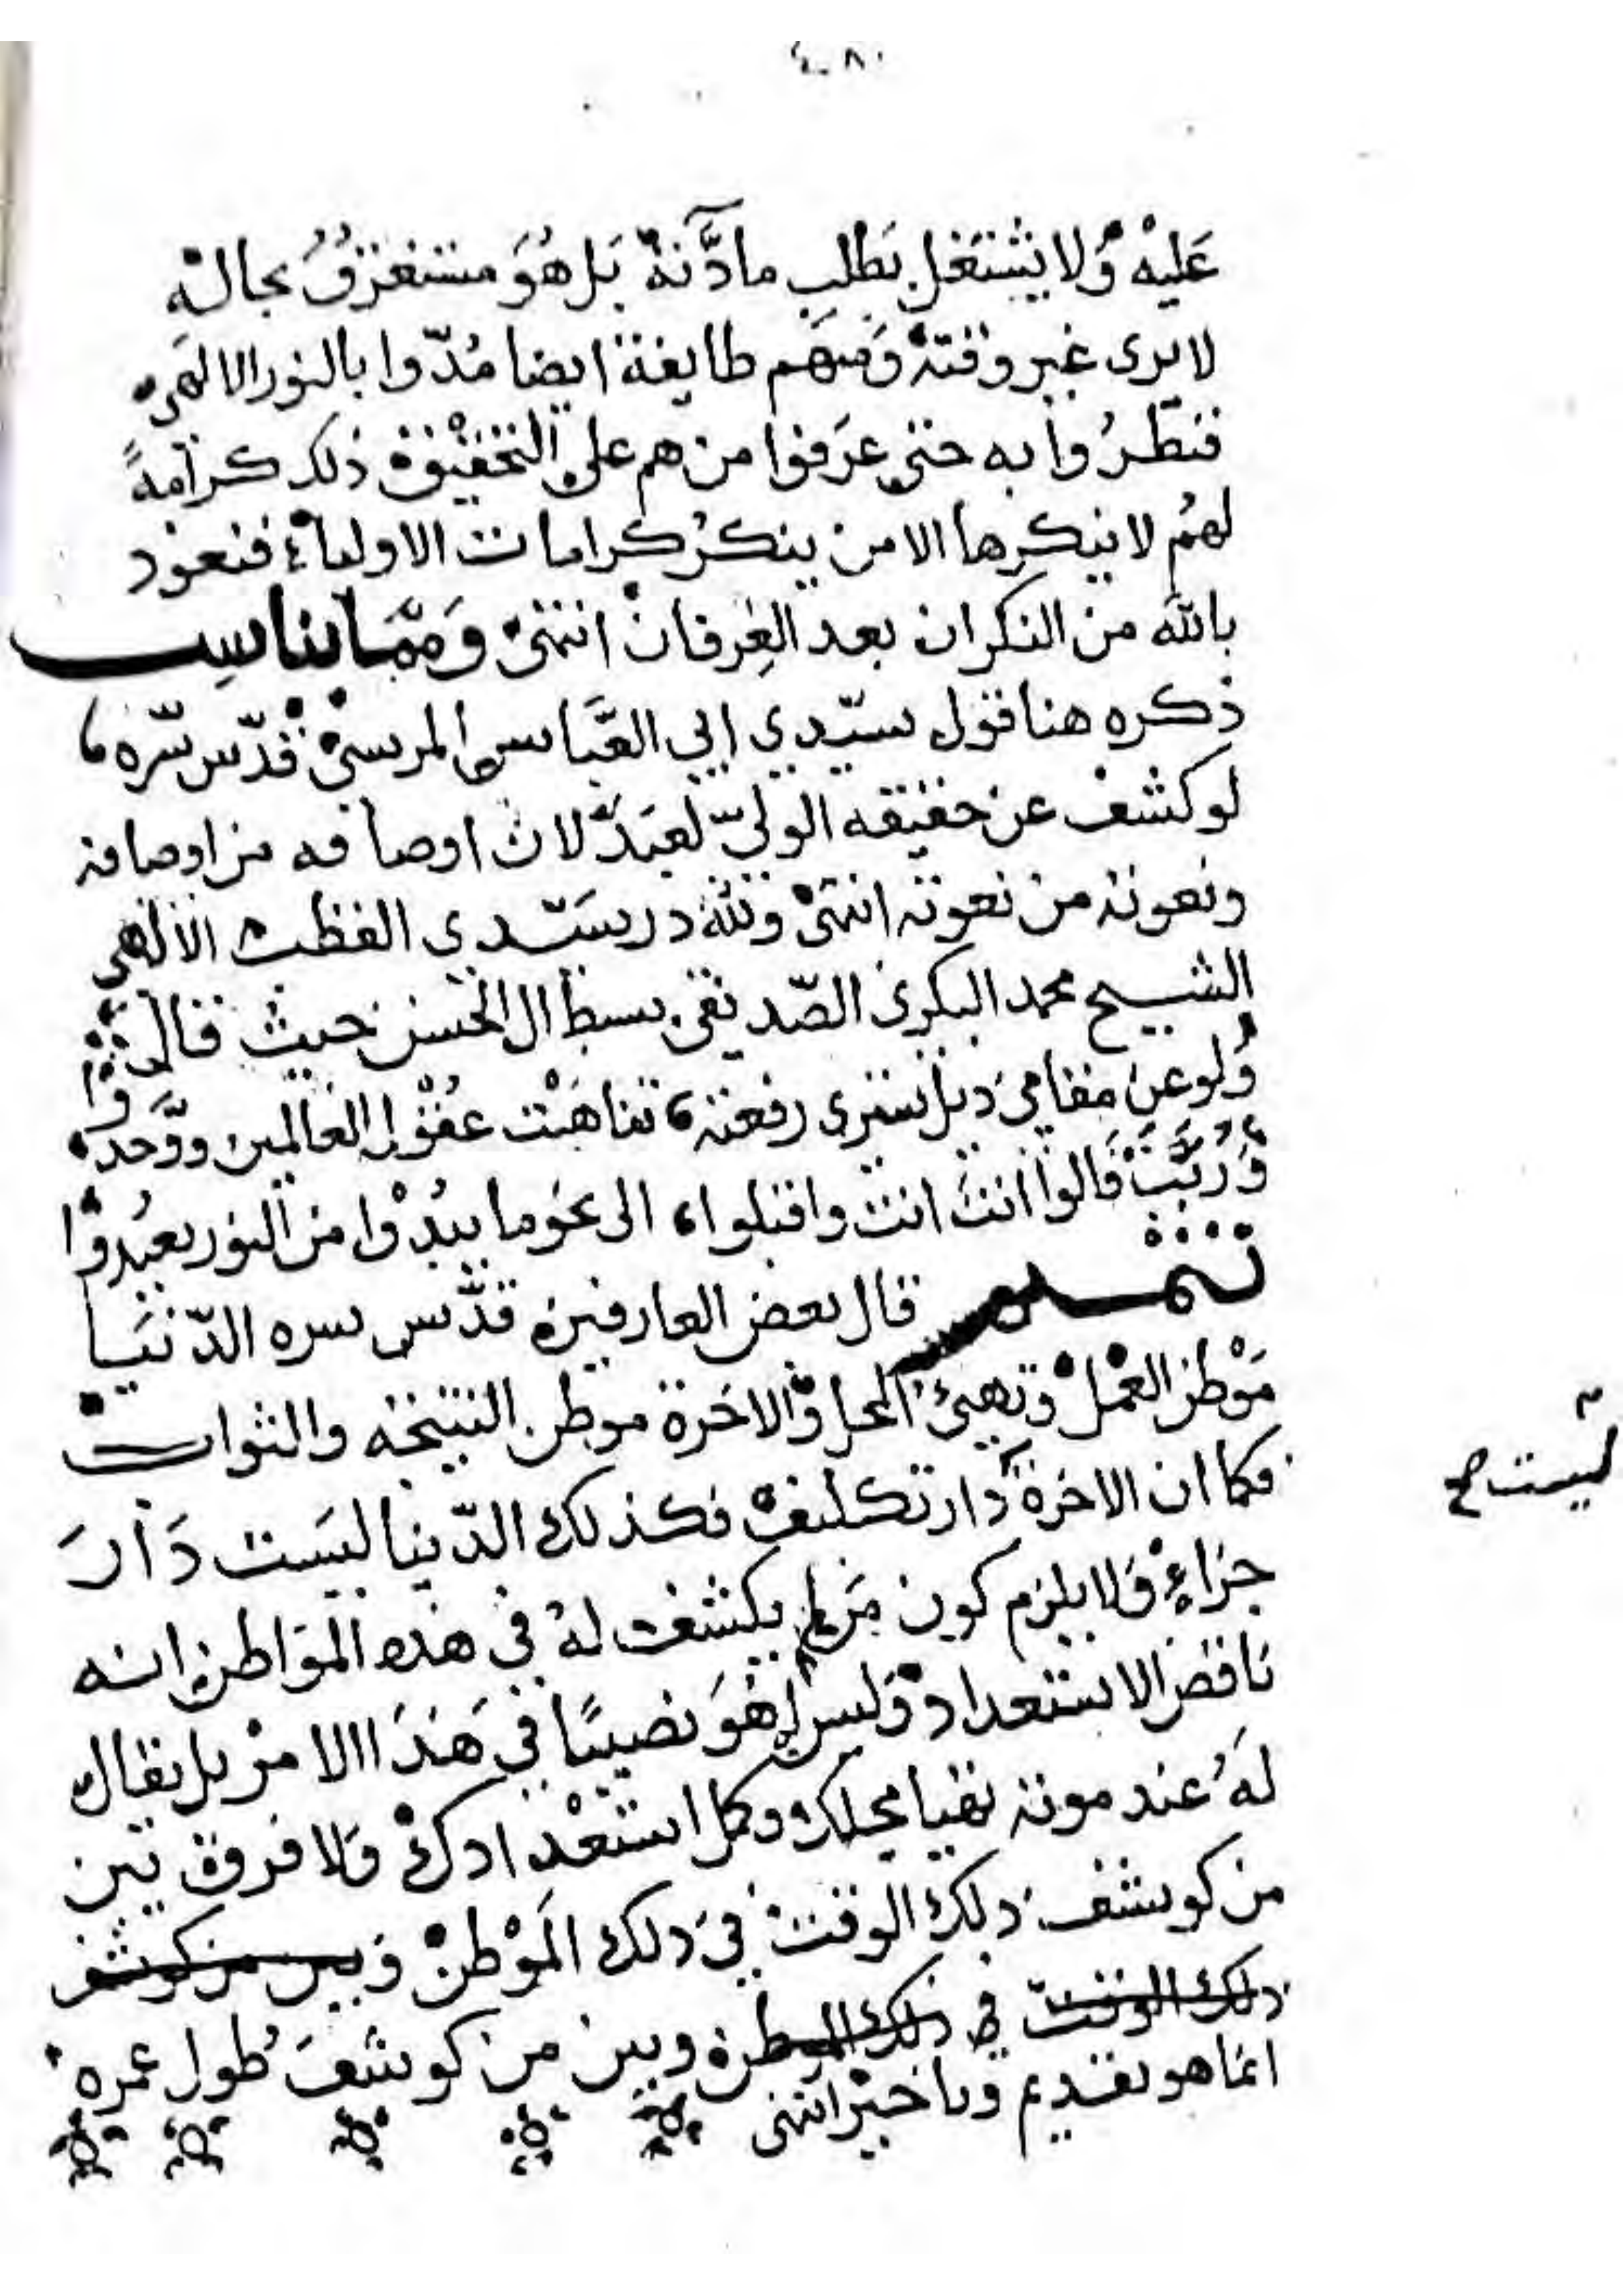 ٤٠٨
عَليْه وَلا يشتغل بَطلبِ مادَّنهْ بَل هُوَ مستغرقُ بحاله
لا يرى غير وقته وَمنهم طايفة ايضا مُدّوا بالنور الالهي
فنظرُوا به حتى عرَفوا من هم على التحقيق ذلك كرامةً
لهمُ لا ينكرها الا من ينكرُ كرامات الاولياء فنعوذ
بالله من النكران بعد العِرفان انتهى وَممّا يناسِب
ذكره هنا قول سيّدي ابي العَبَّاس المرسي قدّس سّره
لو كشف عن حقيقه الوليّ لعبَدَ لان اوصافه من اوصافه
ونعوته من نعوته انتهى ولله در سيَّدي القطب الالهي
الشيخ محمد البكري الصّديقي سبط ال الحسن حيث قال
وَلو عن مقامي ذيل ستري رفعته تناهَت عقوْل العالمين ووَّحدوا
وَرُبَّتَ قالوا انت انت واقبلوا الى نحو ما يبدُوا من النور يعبُدوا
تتمه قال بعض العارفين قدَّس سره الدّنيَا
مَوْطن العمل وتهيئ المحل وَالاخرة موطن النتيجه والثواب
فكما ان الاخرة دار تكليف فكذلك الدّنيا ليسَت دَارَ
ليست صح
جزاءٍ وَلا يلزم كون مَن لم يكشف له في هذه المَواطن انه
ناقص الاستعداد وَليس لهوَ نصيبًا في هَذَا الامر بل يقال
لهَ عند موته تهيا محلك وكمل استعْدادك وَلا فرق بين
من كوشف ذلك الوقت في ذلك المَوْطن وَبين من كوشف
ذلك الوقت في ذلك الموطن وبين من كوشفَ طول عمره
انما هو تقديم وتاخير انتهى